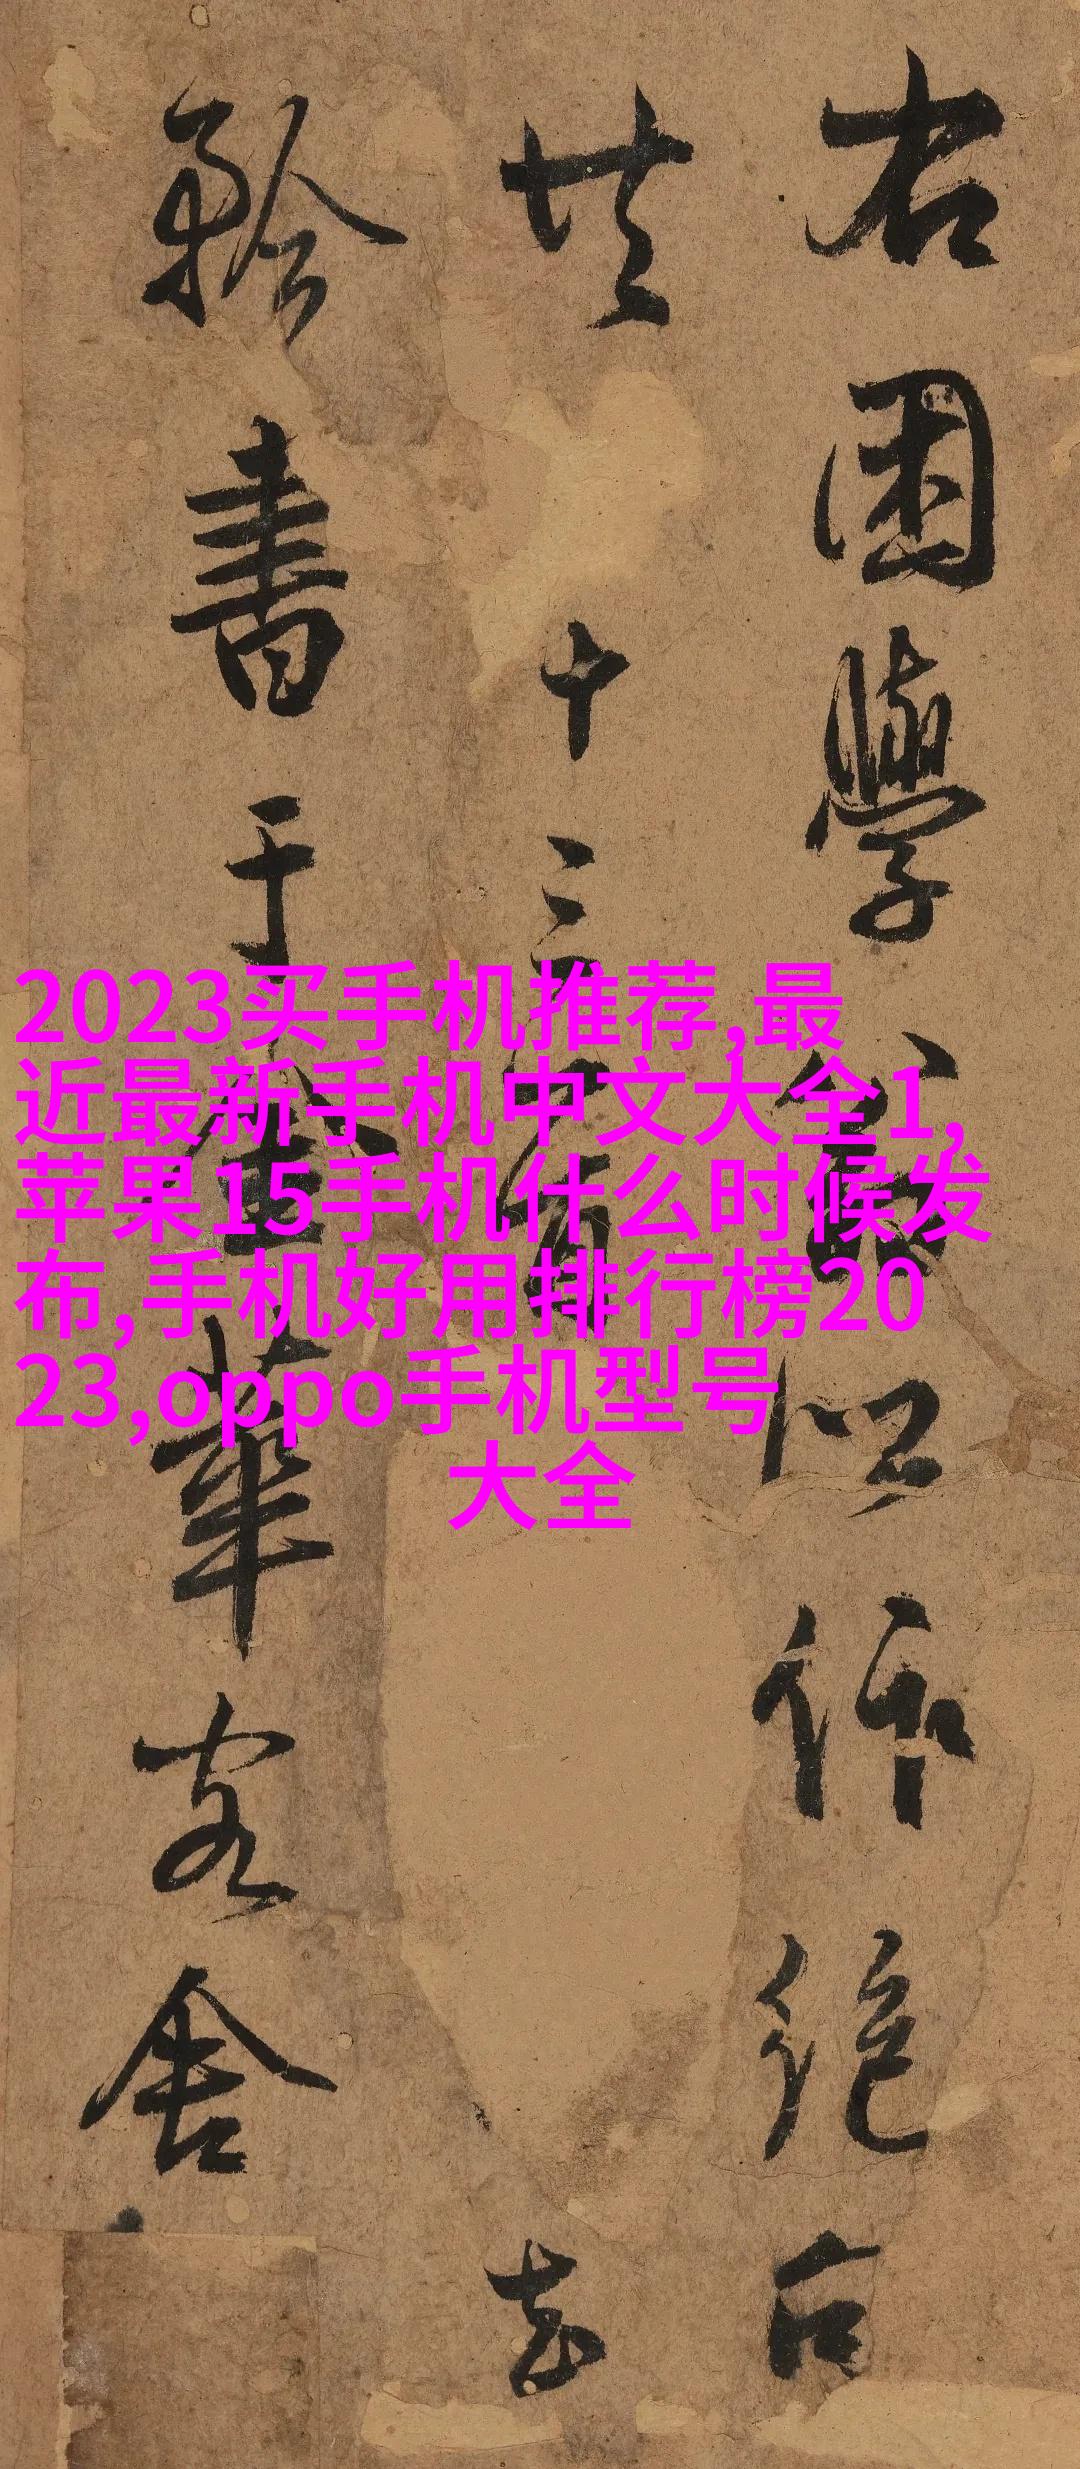 右困學作絕句
共十三首
書于金華客舍
2023买手机推荐,最
近最新手机中文大全1,
苹果15手机什么时候发
布,手机好用排行榜20
23,oppo手机型号
大全